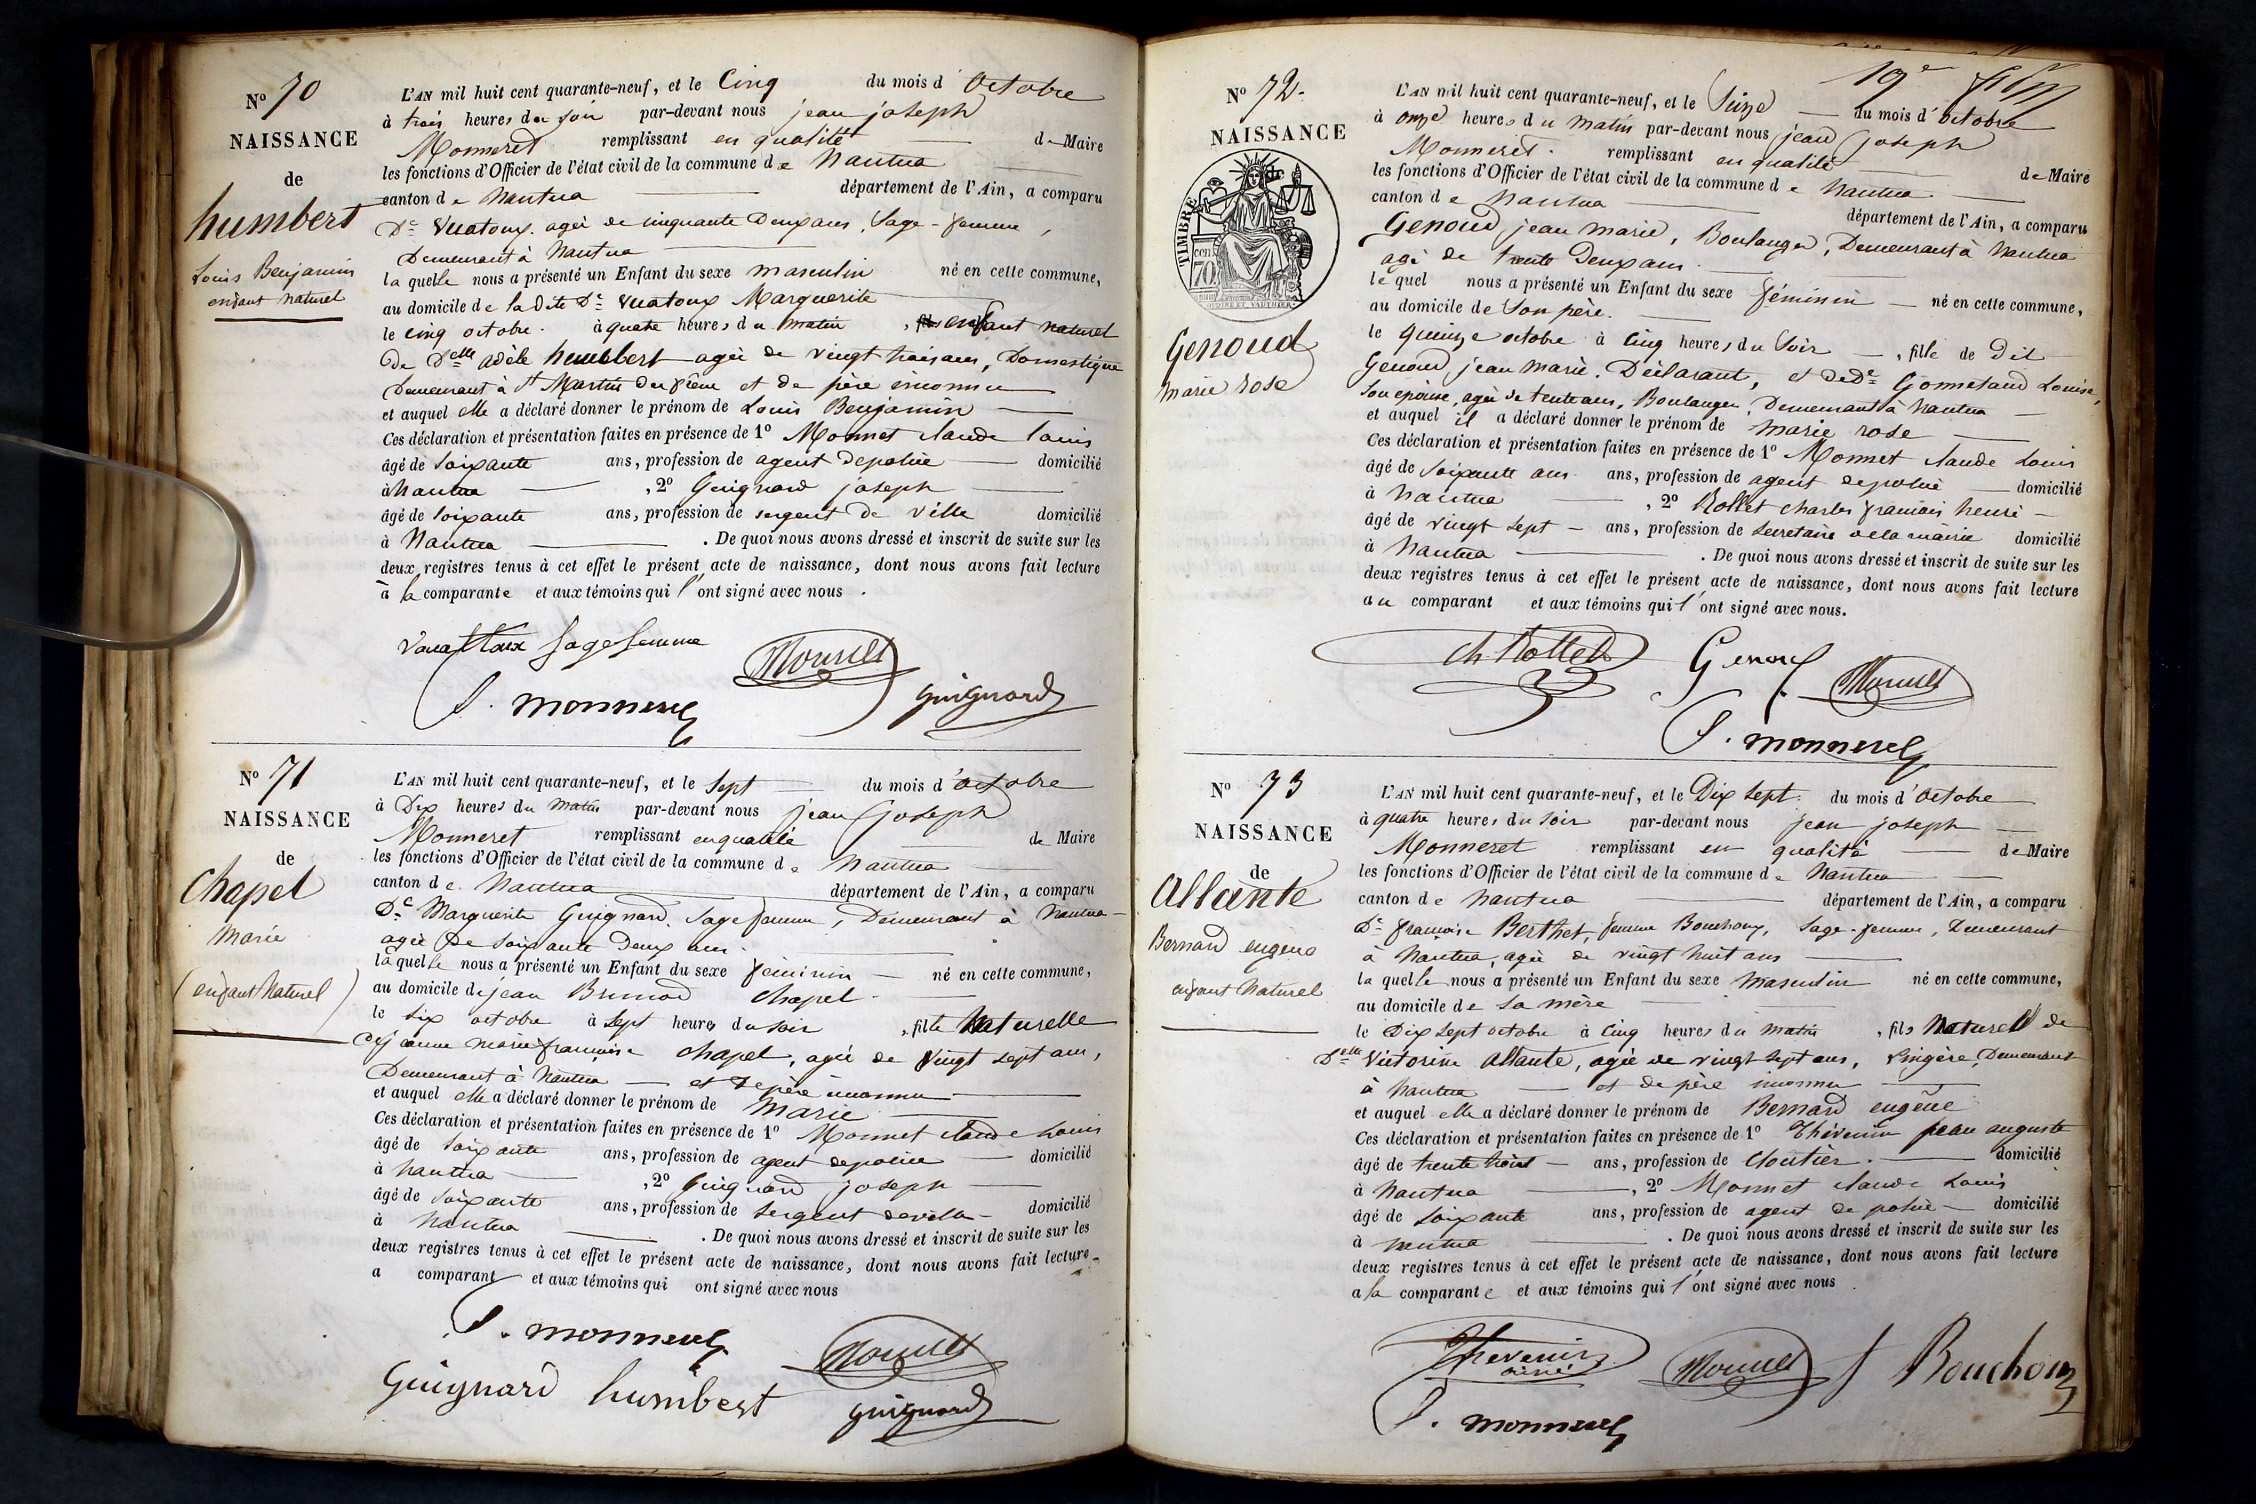 N° 70
NAISSANCE
de
humbert
Louis Benjamin
enfant naturel
L'AN mil huit cent quarante-neuf, et le Cinq du mois d'Octobre
à trois heures du soir par-devant nous jean joseph
Monneret remplissant en qualité de Maire
les fonctions d'Officier de l'état civil de la commune de Nantua
canton de Nantua département de l'Ain, a comparu
De Vuatoux agée de cinquante Deux ans, Sage-femme,
Demeurant à Nantua
laquelle nous a présenté un Enfant du sexe masculin né en cette commune,
au domicile de la dite De Vuatoux Marguerite
le cinq octobre à quatre heures du matin, enfant naturel
de Delle adèle humbert agée de vingt trois ans, Domestique
Demeurant à St Martin du frêne et de père inconnu
et auquel elle a déclaré donner le prénom de Louis Benjamin
Ces déclaration et présentation faites en présence de 1° Monnet claude Louis
âgé de soixante ans, profession de agent de police domicilié
à Nantua, 2° Guignard joseph
âgé de soixante ans, profession de sergent de ville domicilié
à Nantua. De quoi nous avons dressé et inscrit de suite sur les
deux registres tenus à cet effet le présent acte de naissance, dont nous avons fait lecture
à la comparante et aux témoins qui l'ont signé avec nous.
Sage femme
Monnet
J. monneret
guignard
N° 71
NAISSANCE
de
Chapel
Marie
(enfant Naturel)
L'AN mil huit cent quarante-neuf, et le Sept du mois d'octobre
à Dix heures du matin par-devant nous jean joseph
Monneret remplissant en qualité de Maire
les fonctions d'Officier de l'état civil de la commune de Nantua
canton de Nantua département de l'Ain, a comparu
De Marguerite Guignard, Sage femme, Demeurant à Nantua
agée De Soixante Deux ans.
laquelle nous a présenté un Enfant du sexe féminin né en cette commune,
au domicile de jean Chapel
le six octobre à sept heures du soir, fille Naturelle
de jeanne marie françoise chapel, agée de vingt sept ans,
Demeurant à Nantua et de père inconnu
et auquel elle a déclaré donner le prénom de Marie
Ces déclaration et présentation faites en présence de 1° Monnet claude Louis
âgé de soixante ans, profession de agent de police domicilié
à Nantua, 2° Guignard joseph
âgé de soixante ans, profession de sergent de ville domicilié
à Nantua. De quoi nous avons dressé et inscrit de suite sur les
deux registres tenus à cet effet le présent acte de naissance, dont nous avons fait lecture
a comparant et aux témoins qui ont signé avec nous
J. monneret
Monnet
Guignard humbert
guignard
19e
N° 72
NAISSANCE
TIMBRE
70
Genoud
marie rose
L'AN mil huit cent quarante-neuf, et le Seize du mois d'octobre
à onze heures du matin par-devant nous jean joseph
Monneret remplissant en qualité de Maire
les fonctions d'Officier de l'état civil de la commune de Nantua
canton de Nantua département de l'Ain, a comparu
Genoud jean marie, Boulanger, Demeurant à Nantua
agé de trente Deux ans
lequel nous a présenté un Enfant du sexe féminin né en cette commune,
au domicile de Son père.
le quinze octobre à cinq heures du soir, fille de Dit
Genoud jean marie, Déclarant, et de De Gonnetand Louise,
son épouse, agée de trente ans, Boulanger, Demeurant à Nantua
et auquel il a déclaré donner le prénom de marie rose
Ces déclaration et présentation faites en présence de 1° Monnet claude Louis
âgé de soixante ans ans, profession de agent de police domicilié
à Nantua, 2° Rollet charles françois henri
âgé de vingt sept ans, profession de secretaire de la mairie domicilié
à Nantua. De quoi nous avons dressé et inscrit de suite sur les
deux registres tenus à cet effet le présent acte de naissance, dont nous avons fait lecture
au comparant et aux témoins qui l'ont signé avec nous.
ch Rollet
Genoud
Monnet
J. monneret
N° 73
NAISSANCE
de
Allante
Bernard eugène
enfant Naturel
L'AN mil huit cent quarante-neuf, et le Dix Sept du mois d'Octobre
à quatre heures du soir par-devant nous jean joseph
Monneret remplissant en qualité de Maire
les fonctions d'Officier de l'état civil de la commune de Nantua
canton de Nantua département de l'Ain, a comparu
De françoise Berthet, femme Bouchoux, Sage-femme, Demeurant
à Nantua, agée de vingt huit ans
laquelle nous a présenté un Enfant du sexe masculin né en cette commune,
au domicile de sa mère
le Dix sept octobre à cinq heures du matin, fils Naturel de
Delle Victorine Allante, agée de vingt sept ans, Lingère, Demeurant
à Nantua et de père inconnu
et auquel elle a déclaré donner le prénom de Bernard eugène
Ces déclaration et présentation faites en présence de 1° Thévenin jean auguste
âgé de trente trois ans, profession de Cloutier. domicilié
à Nantua, 2° Monnet claude Louis
âgé de soixante ans, profession de agent de police domicilié
à Nantua. De quoi nous avons dressé et inscrit de suite sur les
deux registres tenus à cet effet le présent acte de naissance, dont nous avons fait lecture
a la comparante et aux témoins qui l'ont signé avec nous.
Thevenin
ainé
Monnet
f Bouchoux
J. monneret